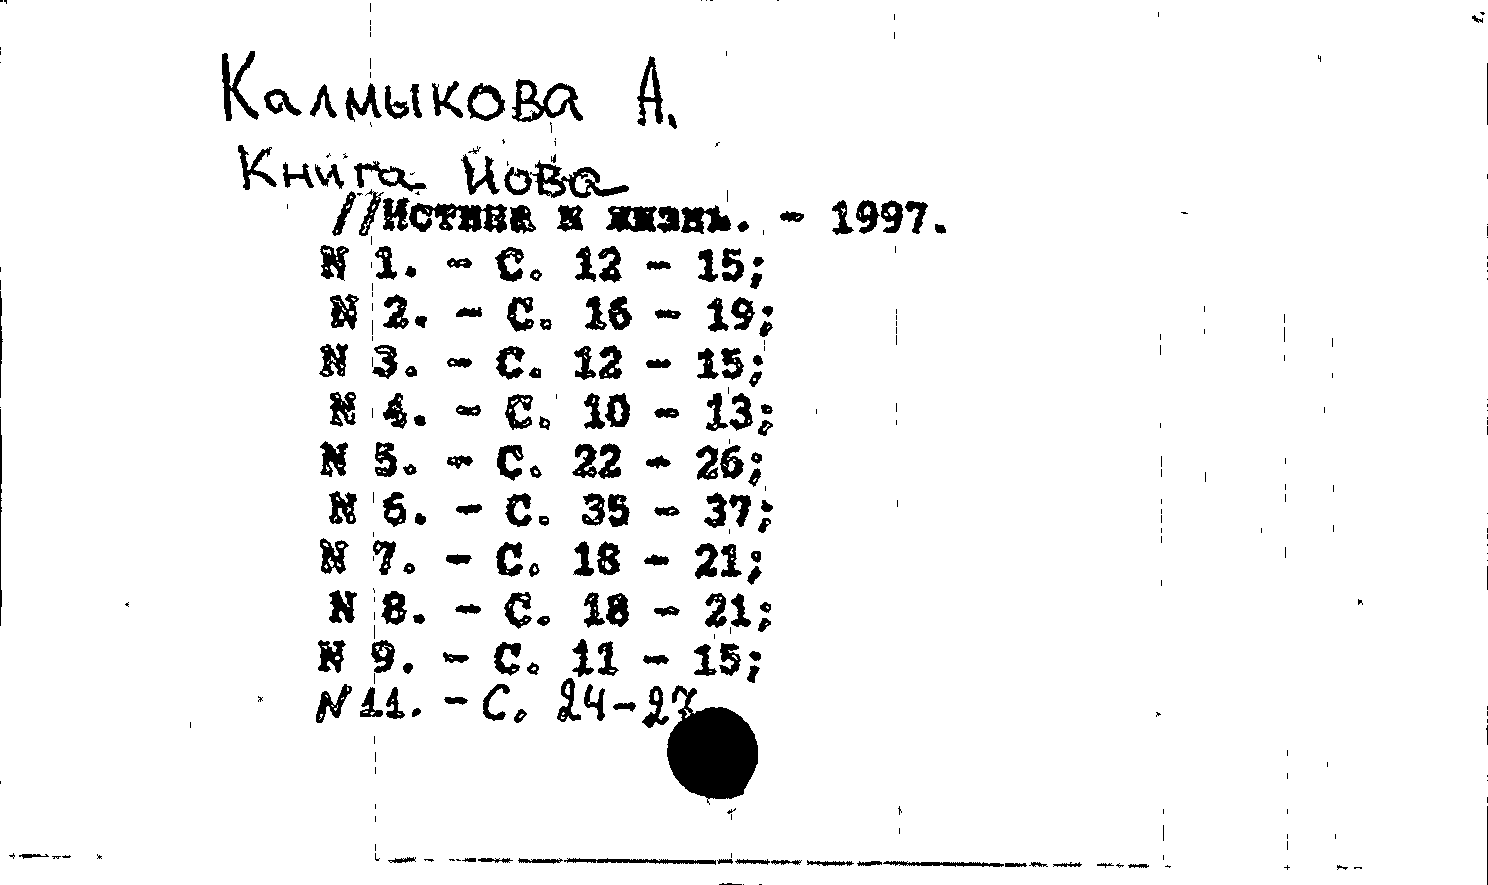 Калмыкова А.
Книга Иова
//Истина и жизнь. - 1997.
N 1. - С. 12 - 15;
N 2. - С. 16 - 19;
N 3. - С. 12 - 15;
N 4. - С. 10 - 13;
N 5. - С. 22 - 26;
N 6. - С. 35 - 37;
N 7. - С. 18 - 21;
N 8. - С. 18 - 21;
N 9. - С. 11 - 15;
N 11. - С. 24-27